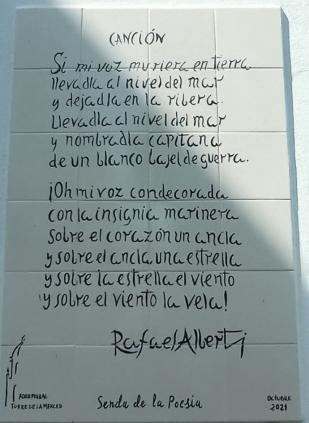 CANCIÓN
Si mi voz muriera en tierra
llevadla al nivel del mar
y dejadla en la ribera.
Llevadla al nivel del mar
y nombradla capitana
de un blanco bajel de guerra.
¡Oh mi voz condecorada
con la insignia marinera
sobre el corazón un ancla
y sobre el ancla una estrella
y sobre la estrella el viento
y sobre el viento la vela!
Rafael Alberti
TORRE DE LA MERCED
Senda de la Poesía
OCTUBRE
2021